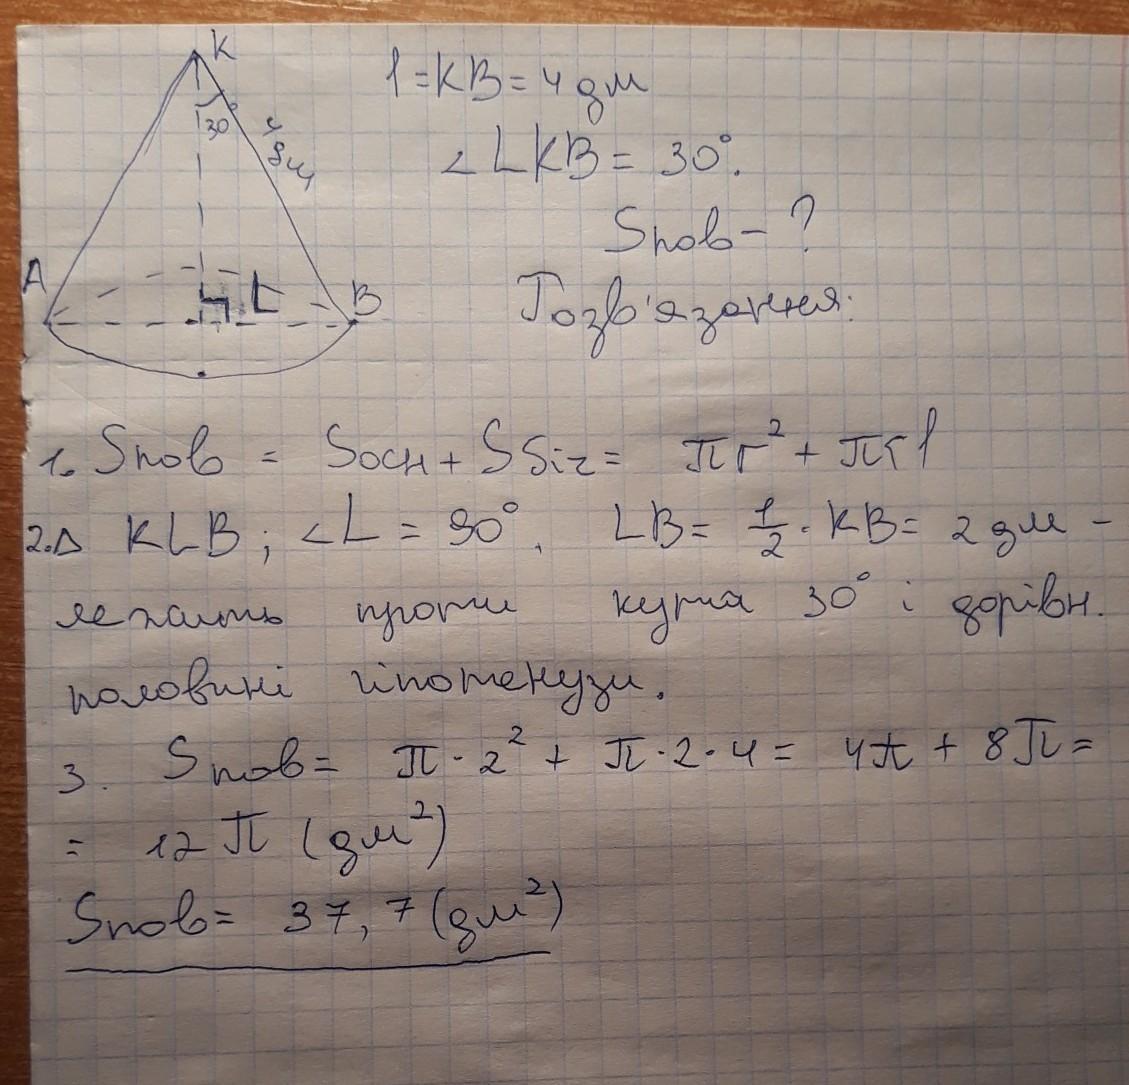 K
l = KB = 4 дм
30
4 дм
∠LKB = 30°.
Sпов - ?
A
L
B
Розв'язання:
1. Sпов = Sосн + Sбіч = πr² + πrl
2. Δ KLB; ∠L = 90°. LB = 1/2 · KB = 2 дм -
лежить проти кута 30° і дорівн.
половині гіпотенузи.
3. Sпов = π · 2² + π · 2 · 4 = 4π + 8π =
= 12π (дм²)
Sпов = 37,7 (дм²)